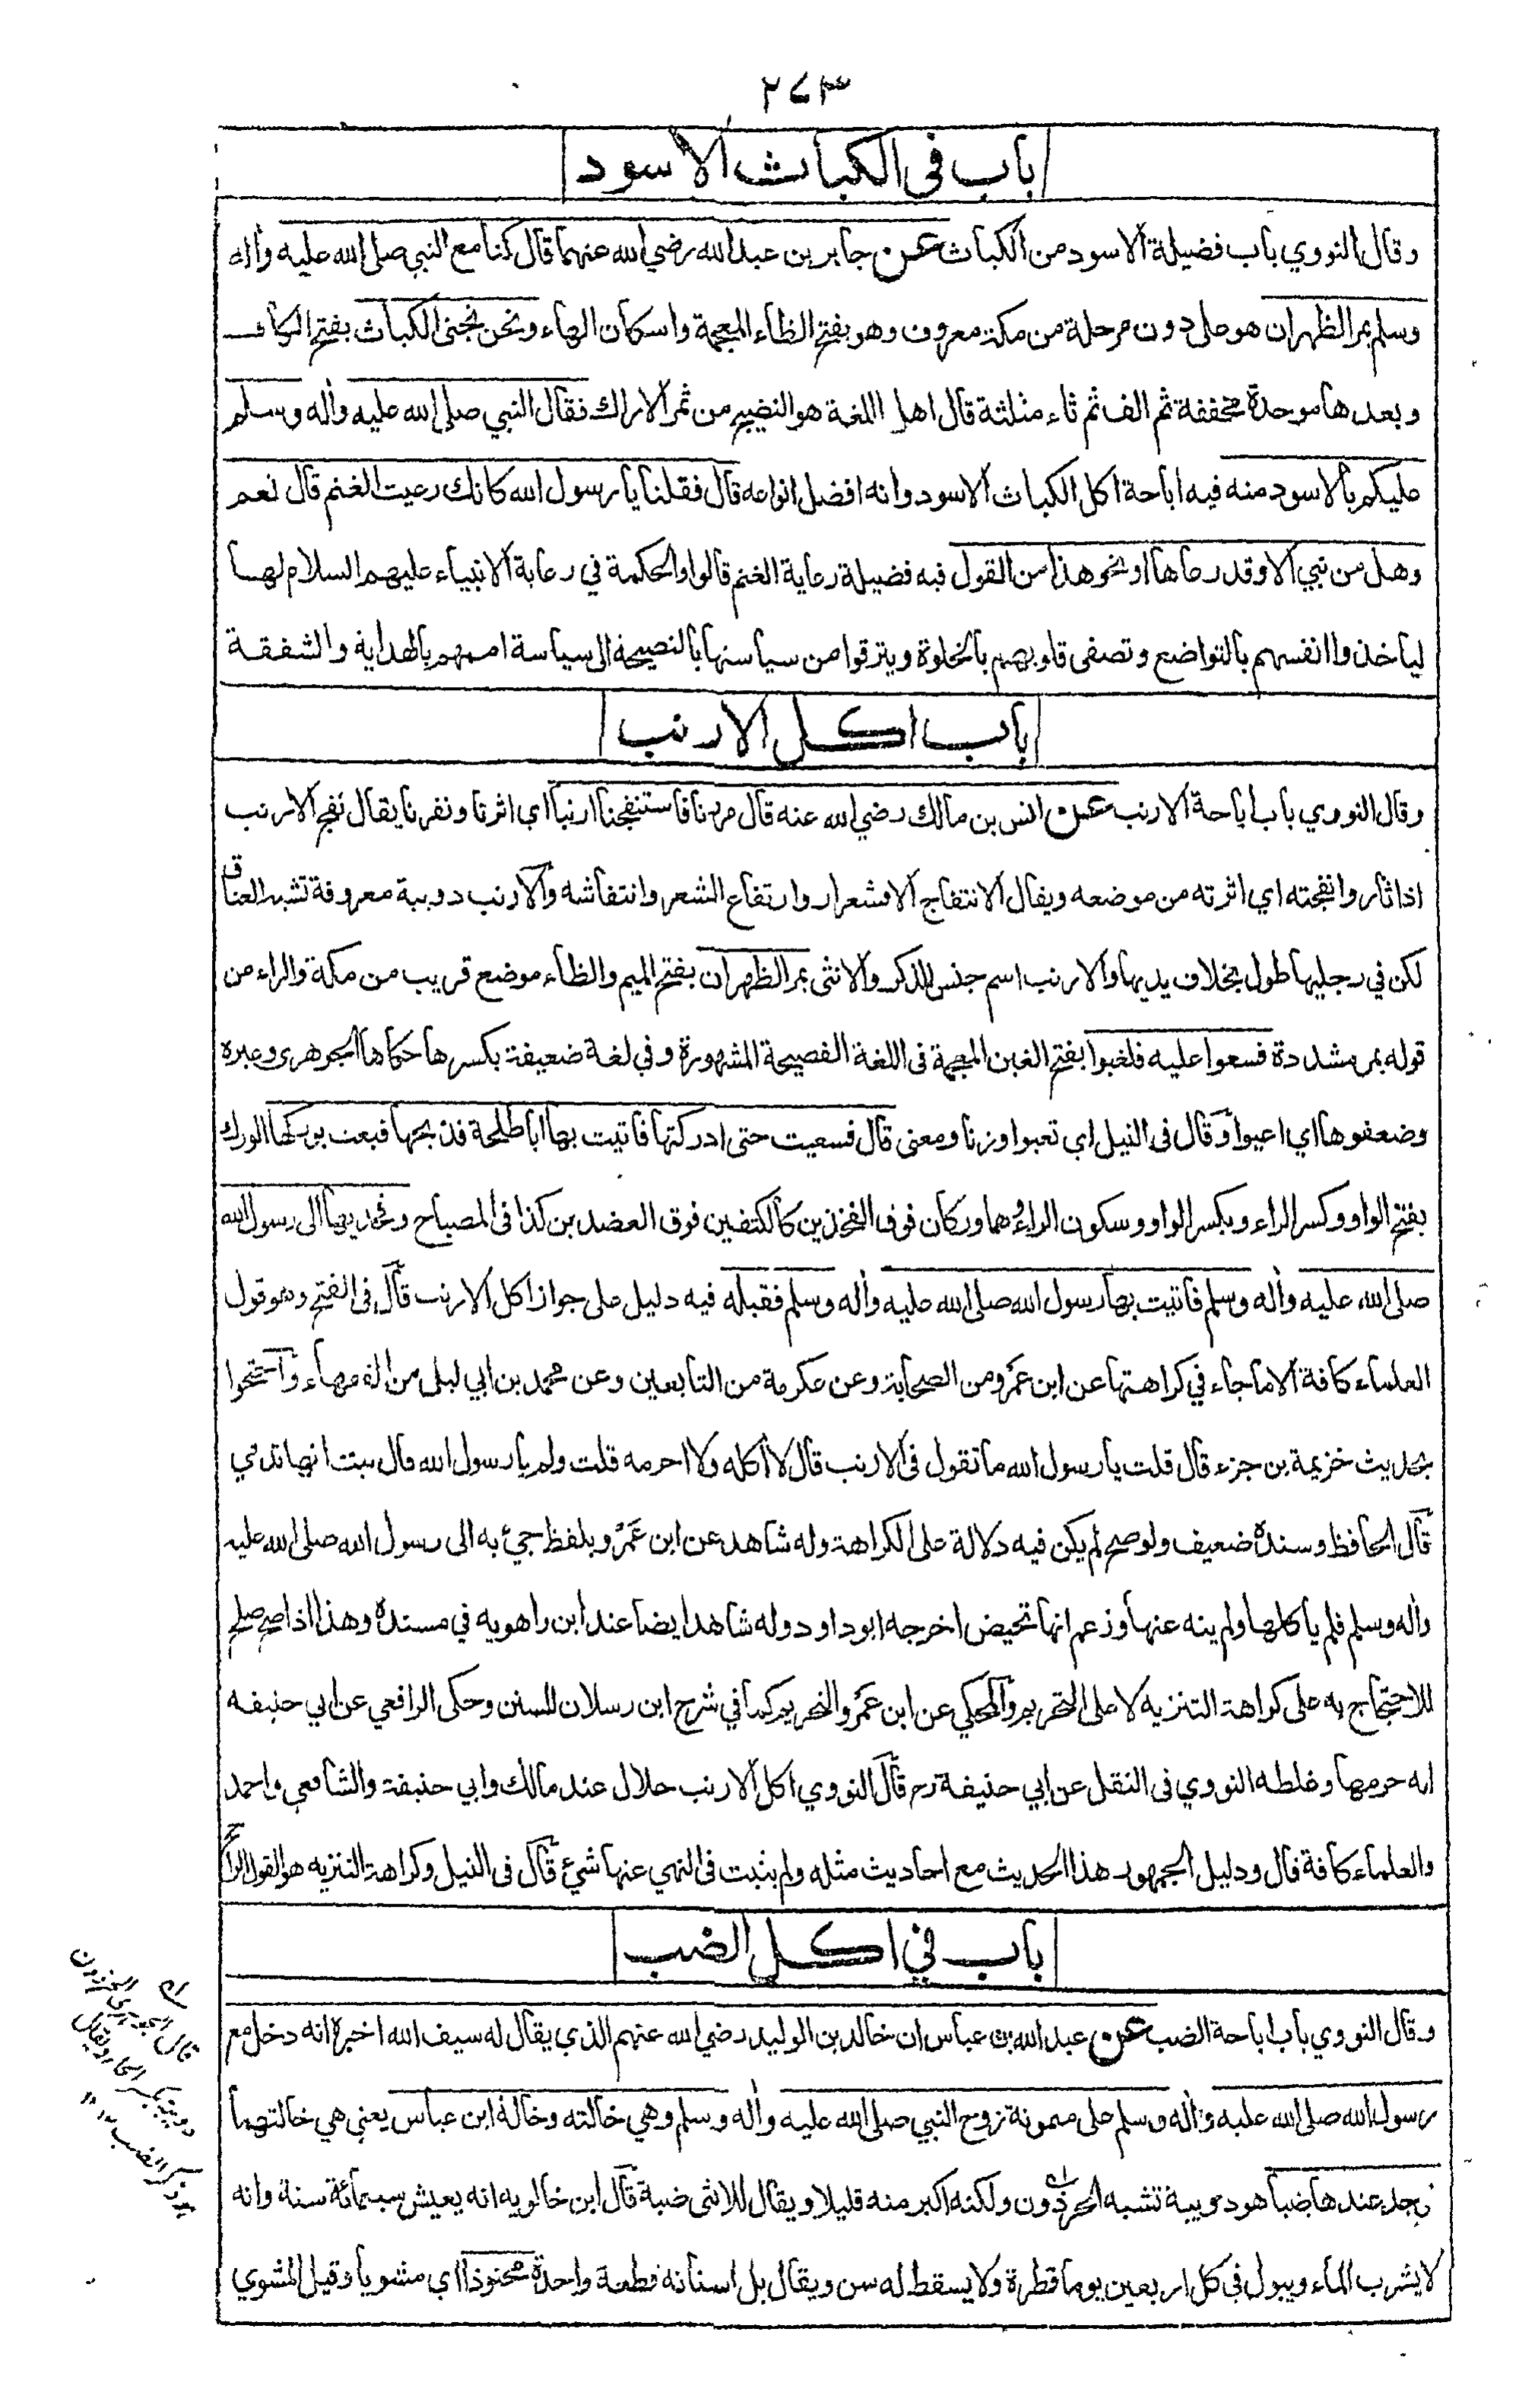 ٢٧٣
باب في الكباث الاسود
وقال النووي باب فضيلة الاسود من الكباث عن جابر بن عبد الله رضي الله عنهما قال كنا مع النبي صلى الله عليه واٰله
وسلم بمر الظهران هو على دون مرحلة من مكة معروف وهو بفتح الظاء المعجمة واسكان الهاء ونحن نجني الكباث بفتح الكاف
وبعدها موحدة مخففة ثم الف ثم ثاء مثلثة قال اهل اللغة هو النضيج من ثمر الاراك فقال النبي صلى الله عليه واٰله وسلم
عليكم بالاسود منه فيه اباحة اكل الكباث الاسود وانه افضل انواعه قال فقلنا يا رسول الله كانك رعيت الغنم قال نعم
وهل من نبي الا وقد رعاها او نحو هذا من القول فيه فضيلة رعاية الغنم قالوا والحكمة في رعاية الانبياء عليهم السلام لها
لياخذوا انفسهم بالتواضع وتصفى قلوبهم بالخلوة ويترقوا من سياستها بالنصيحة الى سياسة اممهم بالهداية والشفقة
باب اكل الارنب
وقال النووي باب اباحة الارنب عن انس بن مالك رضي الله عنه قال مررنا فاستنفجنا ارنبا اي اثرنا ونفرنا يقال نفج الارنب
اذا ثار وانفجته اي اثرته من موضعه ويقال الانتفاج الاقشعرار وارتفاع الشعر وانتفاشه والارنب دويبة معروفة تشبه العناق
لكن في رجليها طول بخلاف يديها والارنب اسم جنس للذكر والانثى بمر الظهران بفتح الميم والظاء موضع قريب من مكة والراء من
قوله بمر مشددة فسعوا عليه فلغبوا بفتح الغين المعجمة في اللغة الفصيحة المشهورة وفي لغة ضعيفة بكسرها حكاها الجوهري وغيره
وضعفوها اي اعيوا وقال في النيل اي تعبوا وزنا ومعنى قال فسعيت حتى ادركتها فاتيت بها ابا طلحة فذبحها فبعث بوركها الورك
بفتح الواو وكسر الراء وبكسر الواو وسكون الراء وهما وركان فوق الفخذين كالكتفين فوق العضدين كذا في المصباح وفخذيها الى رسول الله
صلى الله عليه واٰله وسلم فاتيت بها رسول الله صلى الله عليه واٰله وسلم فقبله فيه دليل على جواز اكل الارنب قال في الفتح وهو قول
العلماء كافة الا ما جاء في كراهتها عن ابن عمرو من الصحابة وعن عكرمة من التابعين وعن محمد بن ابي ليلى من الفقهاء واحتجوا
بحديث خزيمة بن جزء قال قلت يا رسول الله ما تقول في الارنب قال لا اٰكله ولا احرمه قلت ولم يا رسول الله قال نبئت انها تدمي
قال الحافظ وسنده ضعيف ولو صح لم يكن فيه دلالة على الكراهة وله شاهد عن ابن عمرو بلفظ جيء به الى رسول الله صلى الله عليه
واٰله وسلم فلم ياكلها ولم ينه عنها وزعم انها تحيض اخرجه ابو داود وله شاهد ايضا عند ابن راهويه في مسنده وهذا اذا صح صلح
للاحتجاج به على كراهة التنزيه لا على التحريم والمحكي عن ابن عمرو التحريم كما في شرح ابن رسلان للسنن وحكى الرافعي عن ابي حنيفة
انه حرمها وغلطه النووي في النقل عن ابي حنيفة رح قال النووي اكل الارنب حلال عند مالك وابي حنيفة والشافعي واحمد
والعلماء كافة قال ودليل الجمهور هذا الحديث مع احاديث مثله ولم يثبت في النهي عنها شيء قال في النيل وكراهة التنزيه هو القول الراجح
باب في اكل الضب
وقال النووي باب اباحة الضب عن عبد الله بن عباس ان خالد بن الوليد رضي الله عنهم الذي يقال له سيف الله اخبره انه دخل مع
رسول الله صلى الله عليه واٰله وسلم على ميمونة زوج النبي صلى الله عليه واٰله وسلم وهي خالته وخالة ابن عباس يعني هي خالتهما
فوجد عندها ضبا هو دويبة تشبه الحرذون ولكنه اكبر منه قليلا ويقال للانثى ضبة قال ابن خالويه انه يعيش سبعمائة سنة وانه
لا يشرب الماء ويبول في كل اربعين يوما قطرة ولا يسقط له سن ويقال بل اسنانه قطعة واحدة محنوذا اي مشويا وقيل المشوي
قال الجوهري الحرذون
دويبة بكسر الحاء ويقال
هو ذكر الضب ١٢